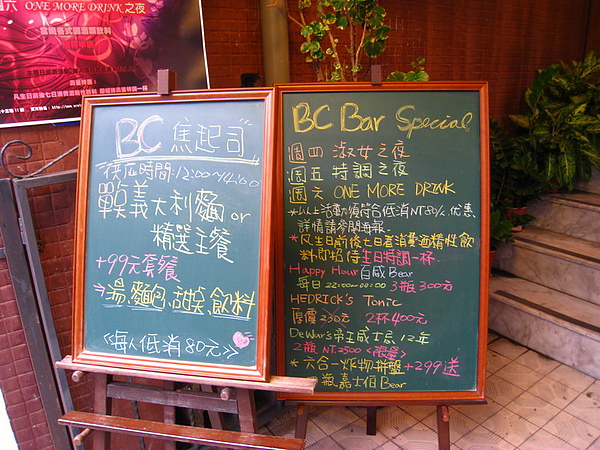 ONE MORE DRINK之夜
BC 焦起司
供应時間:12:00~14:00
義大利麵 or
精選主餐
+99元套餐
→湯.麵包.甜點.飲料
《每人低消80元》
BC Bar Special
週四 淑女之夜
週五 特調之夜
週六 ONE MORE DRINK
*以上活動須符合低消NT80/.优惠
詳情請參閱海報.
*凡生日前後七日者消費酒精性飲
料即招待生日特調一杯.
Happy Hour 百威Bear
每日 22:00~00:00 3瓶300元
HEDRICK's Tonic
原價230元 2杯400元
DeWar's帝王威士忌 12年
2瓶 NT.2500 <限量>
*六合一炸物拼盤+299送
瓶嘉士伯Bear